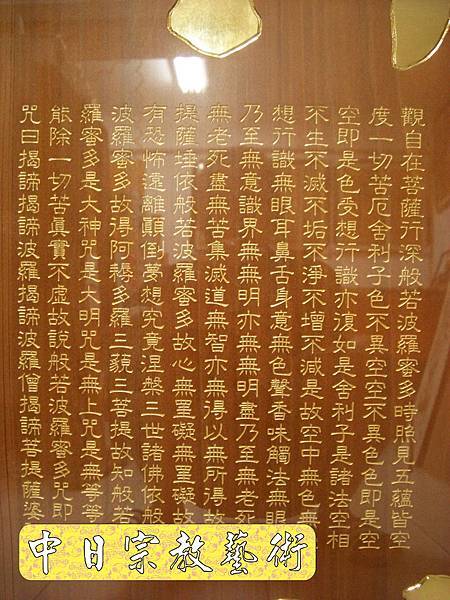 觀自在菩薩行深般若波羅蜜多時照見五蘊皆空
度一切苦厄舍利子色不異空空不異色色即是空
空即是色受想行識亦復如是舍利子是諸法空相
不生不滅不垢不淨不增不減是故空中無色無
想行識無眼耳鼻舌身意無色聲香味觸法無眼
乃至無意識界無無明亦無無明盡乃至無老死
無老死盡無苦集滅道無智亦無得以無所得故
提薩埵依般若波羅蜜多故心無罣礙無罣礙故
有恐怖遠離顛倒夢想究竟涅槃三世諸佛依般
波羅蜜多故得阿耨多羅三藐三菩提故知般若
羅蜜多是大神咒是大明咒是無上咒是無等等
能除一切苦真實不虛故說般若波羅蜜多咒即
咒曰揭諦揭諦波羅揭諦波羅僧揭諦菩提薩婆
中日宗教藝術